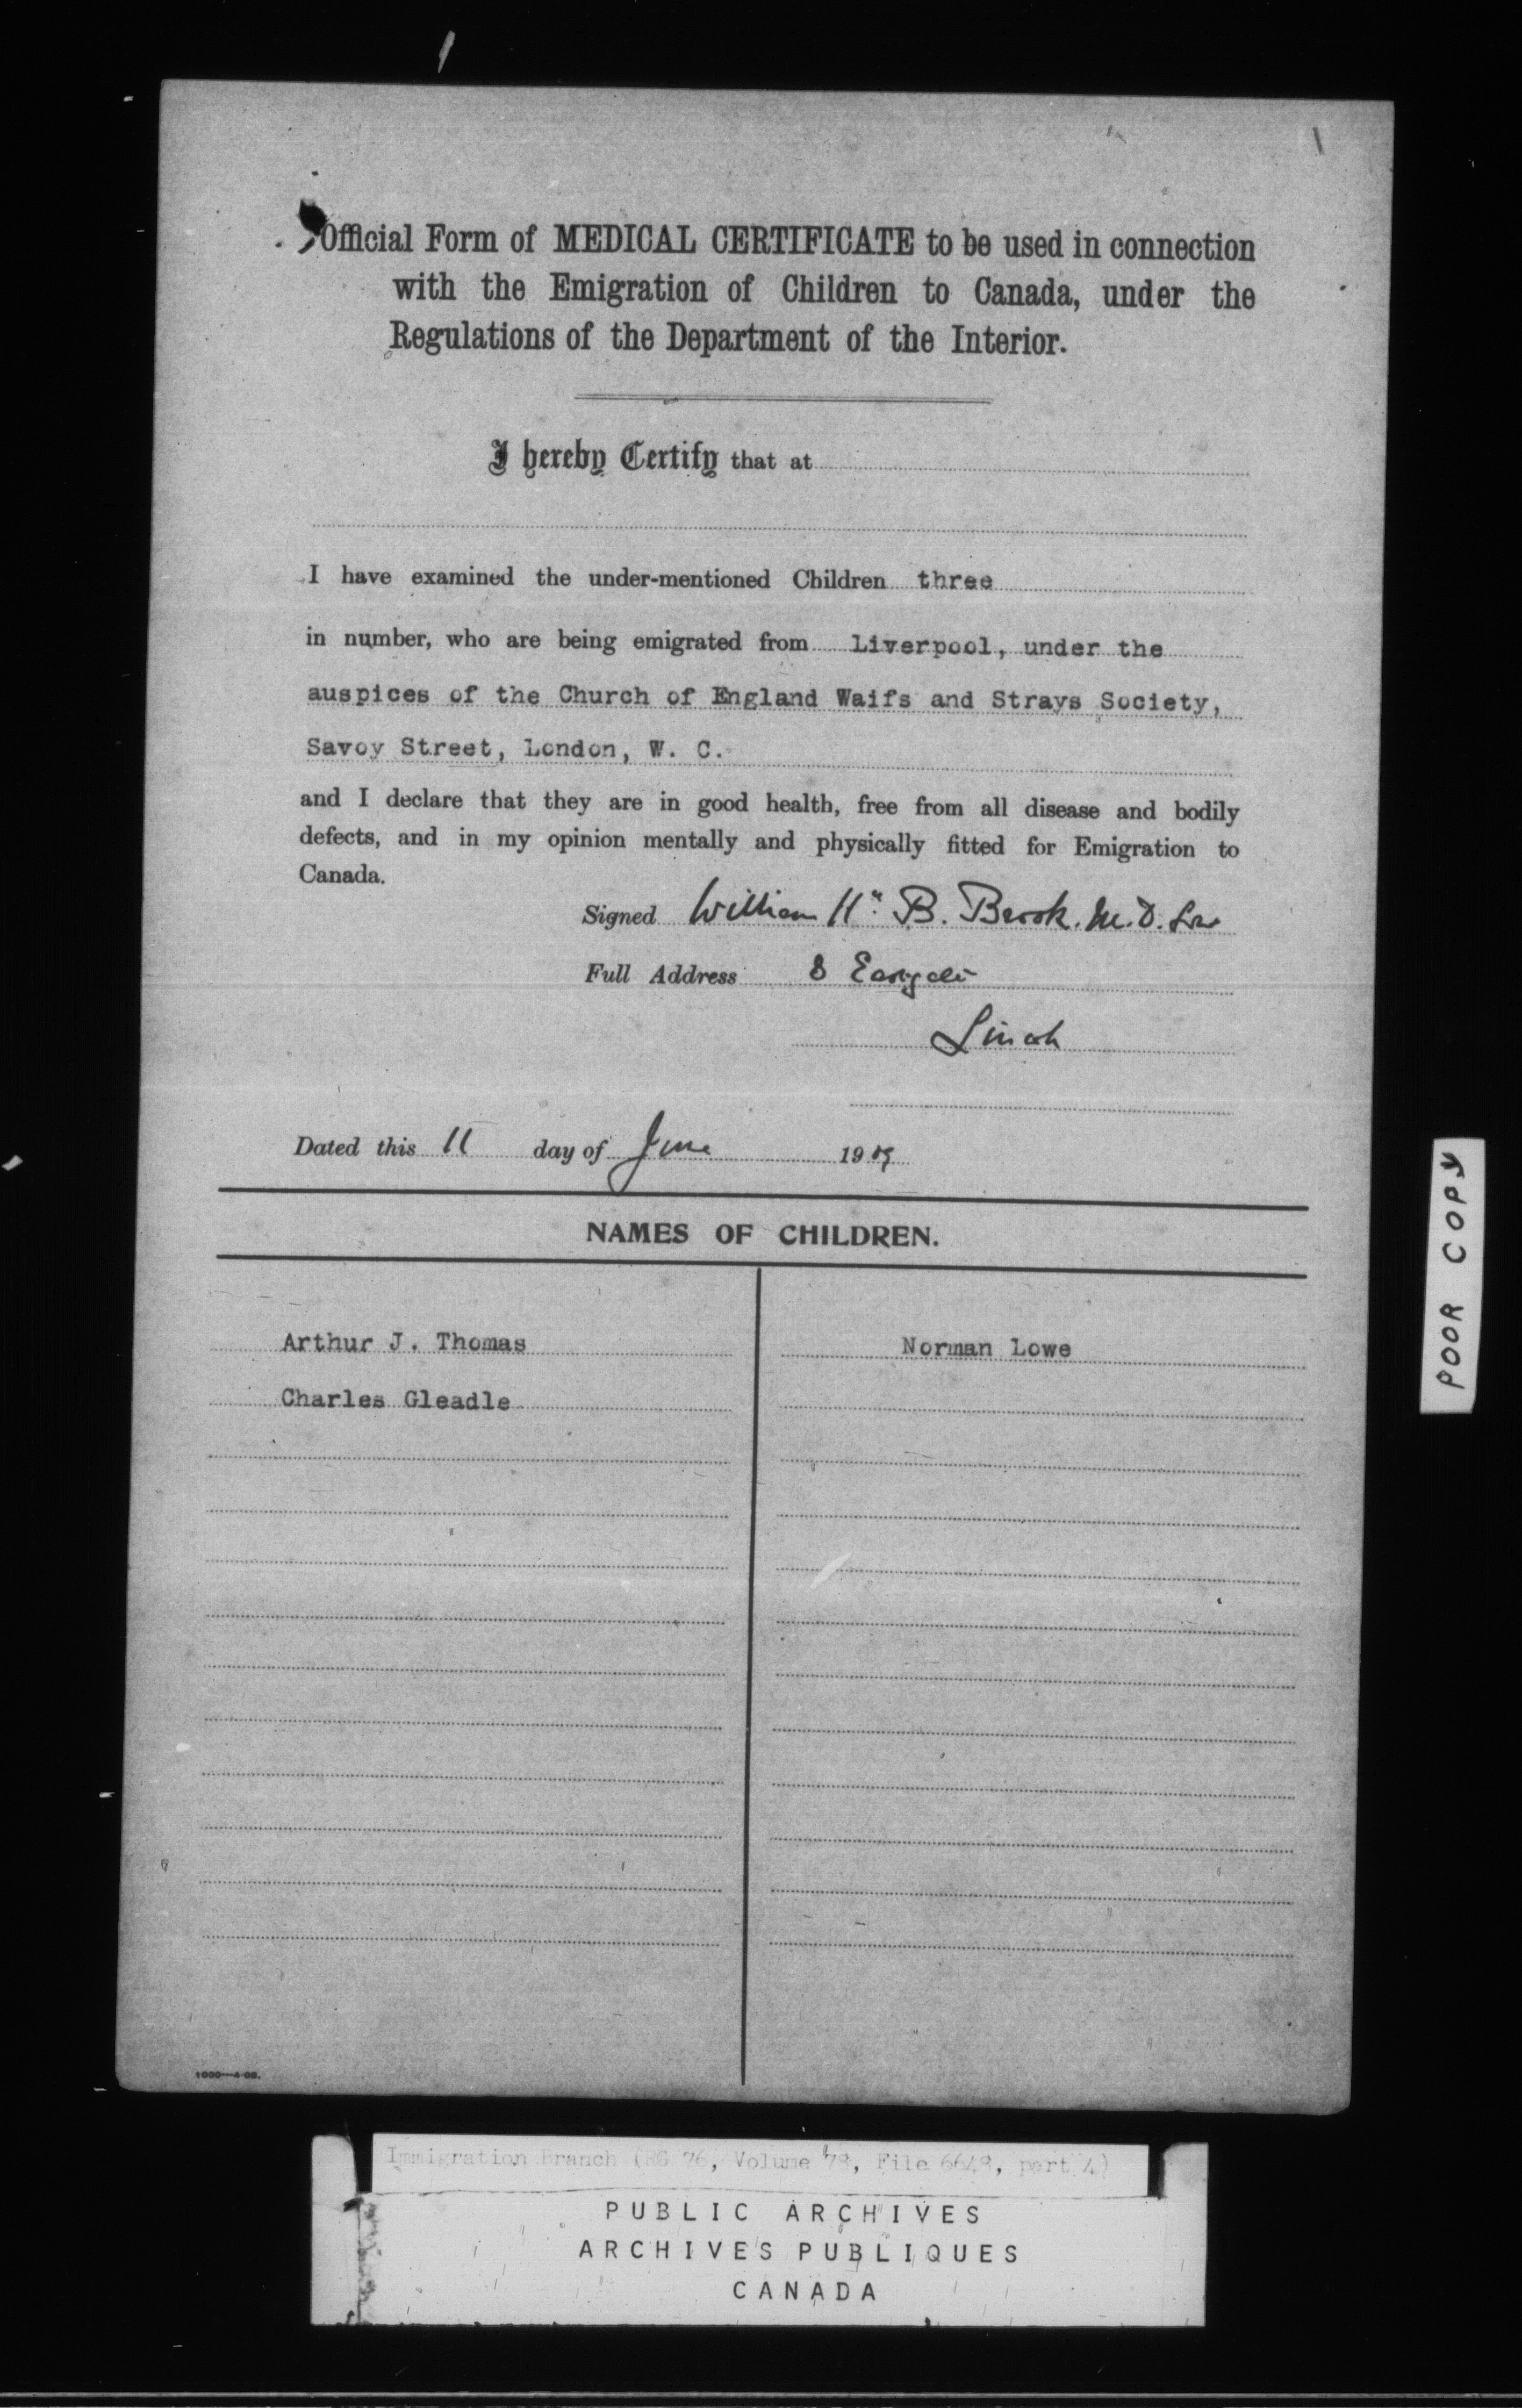 Official Form of MEDICAL CERTIFICATE to be used in connection
with the Emigration of Children to Canada, under the
Regulations of the Department of the Interior.
I hereby Certify that at
I have examined the under-mentioned Children three
in number, who are being emigrated from Liverpool, under the
auspices of the Church of England Waifs and Strays Society,
Savoy Street, London, W. C.
and I declare that they are in good health, free from all disease and bodily
defects, and in my opinion mentally and physically fitted for Emigration to
Canada.
Signed William Hy. B. Brook. M.D. Lon
Full Address 8 Eastgate
Lincoln
Dated this 11 day of June 1909
NAMES OF CHILDREN.
Arthur J. Thomas
Norman Lowe
Charles Gleadle
POOR COPY
Immigration Branch (RG 76, Volume 78, File 6648, part 4)
PUBLIC ARCHIVES
ARCHIVES PUBLIQUES
CANADA